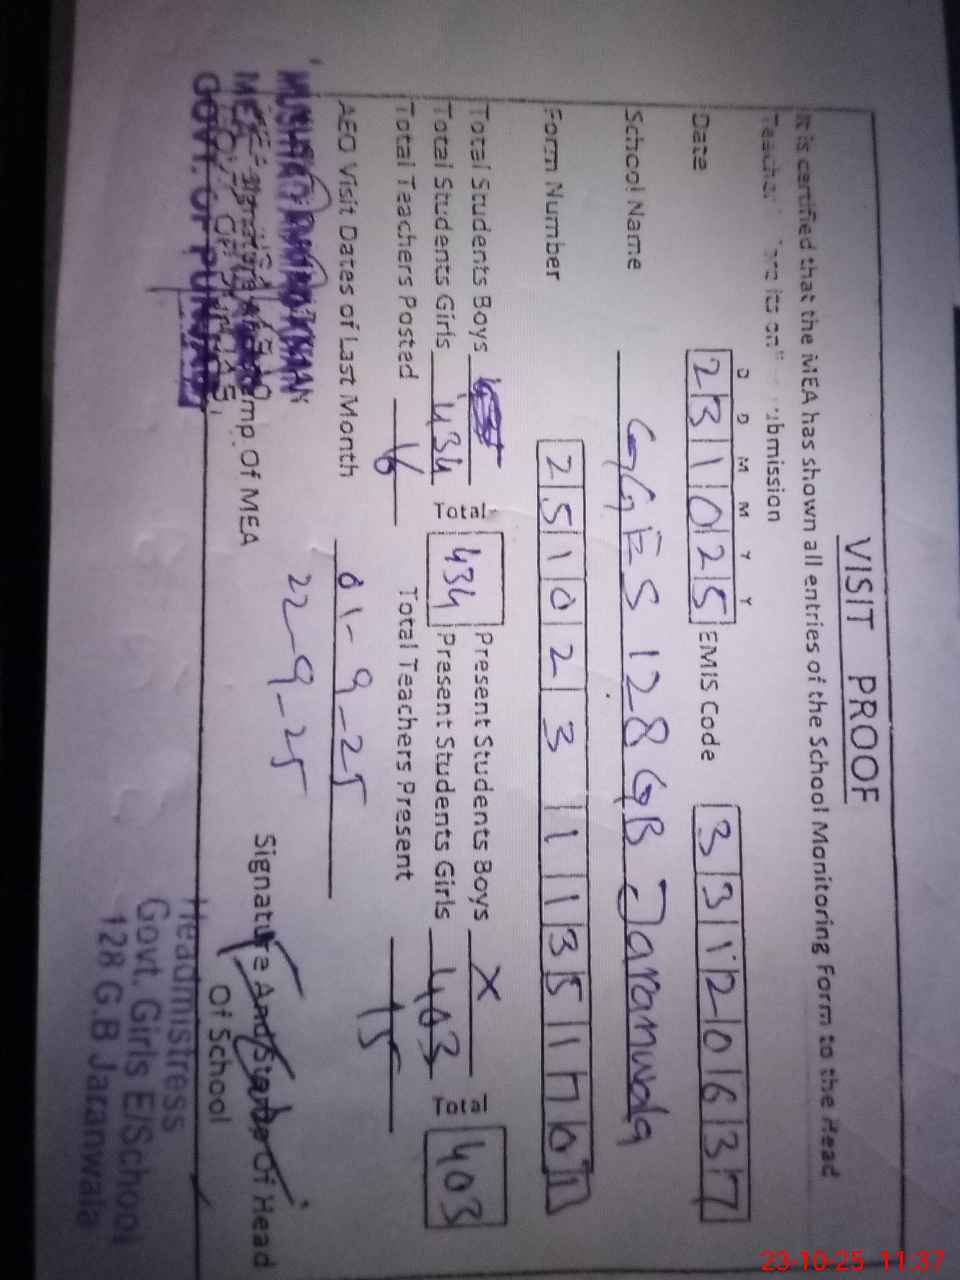 VISIT PROOF
It is certified that the MEA has shown all entries of the School Monitoring Form to the Head
Teacher submission
D D M M Y Y
Date 231025 EMIS Code 33120637
School Name GGES 128 GB Jaranwala
Form Number 251023 11351
Total Students Boys Present Students Boys X
Total Students Girls 434 Total 434 Present Students Girls 403 Total 403
Total Teachers Posted 16 Total Teachers Present 15
AEO Visit Dates of Last Month 01-9-25
22-9-25
MEA
GOVT. OF PUNJAB
Of MEA
Signature And Stamp Of Head
Of School
Headmistress
Govt. Girls E/School
128 G.B Jaranwala
23-10-25 11:37